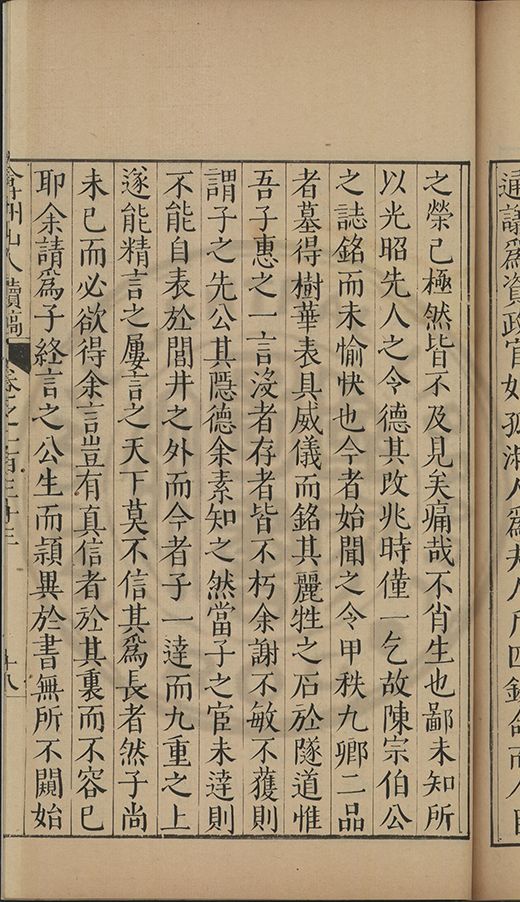 通議爲資政官如孤淑人爲夫人凡四錫命而人
之榮已極然皆不及見矣痛哉不肖生也鄙未知所
以光昭先人之令德其改兆時僅一乞故陳宗伯公
之誌銘而未愉快也今者始聞之令甲秩九卿二品
者墓得樹華表具威儀而銘其麗牲之石於隧道惟
吾子惠之一言沒者存者皆不朽余謝不敏不獲則
謂子之先公其隱德余素知之然當子之宦未達則
不能自表於閭井之外而今者子一達而九重之上
遂能精言之屢言之天下莫不信其爲長者然子尚
未已而必欲得余言豈有真信者於其裏而不容已
耶余請爲子終言之公生而頴異於書無所不闚始
弇州山人續稿 卷之一百三十三 十八